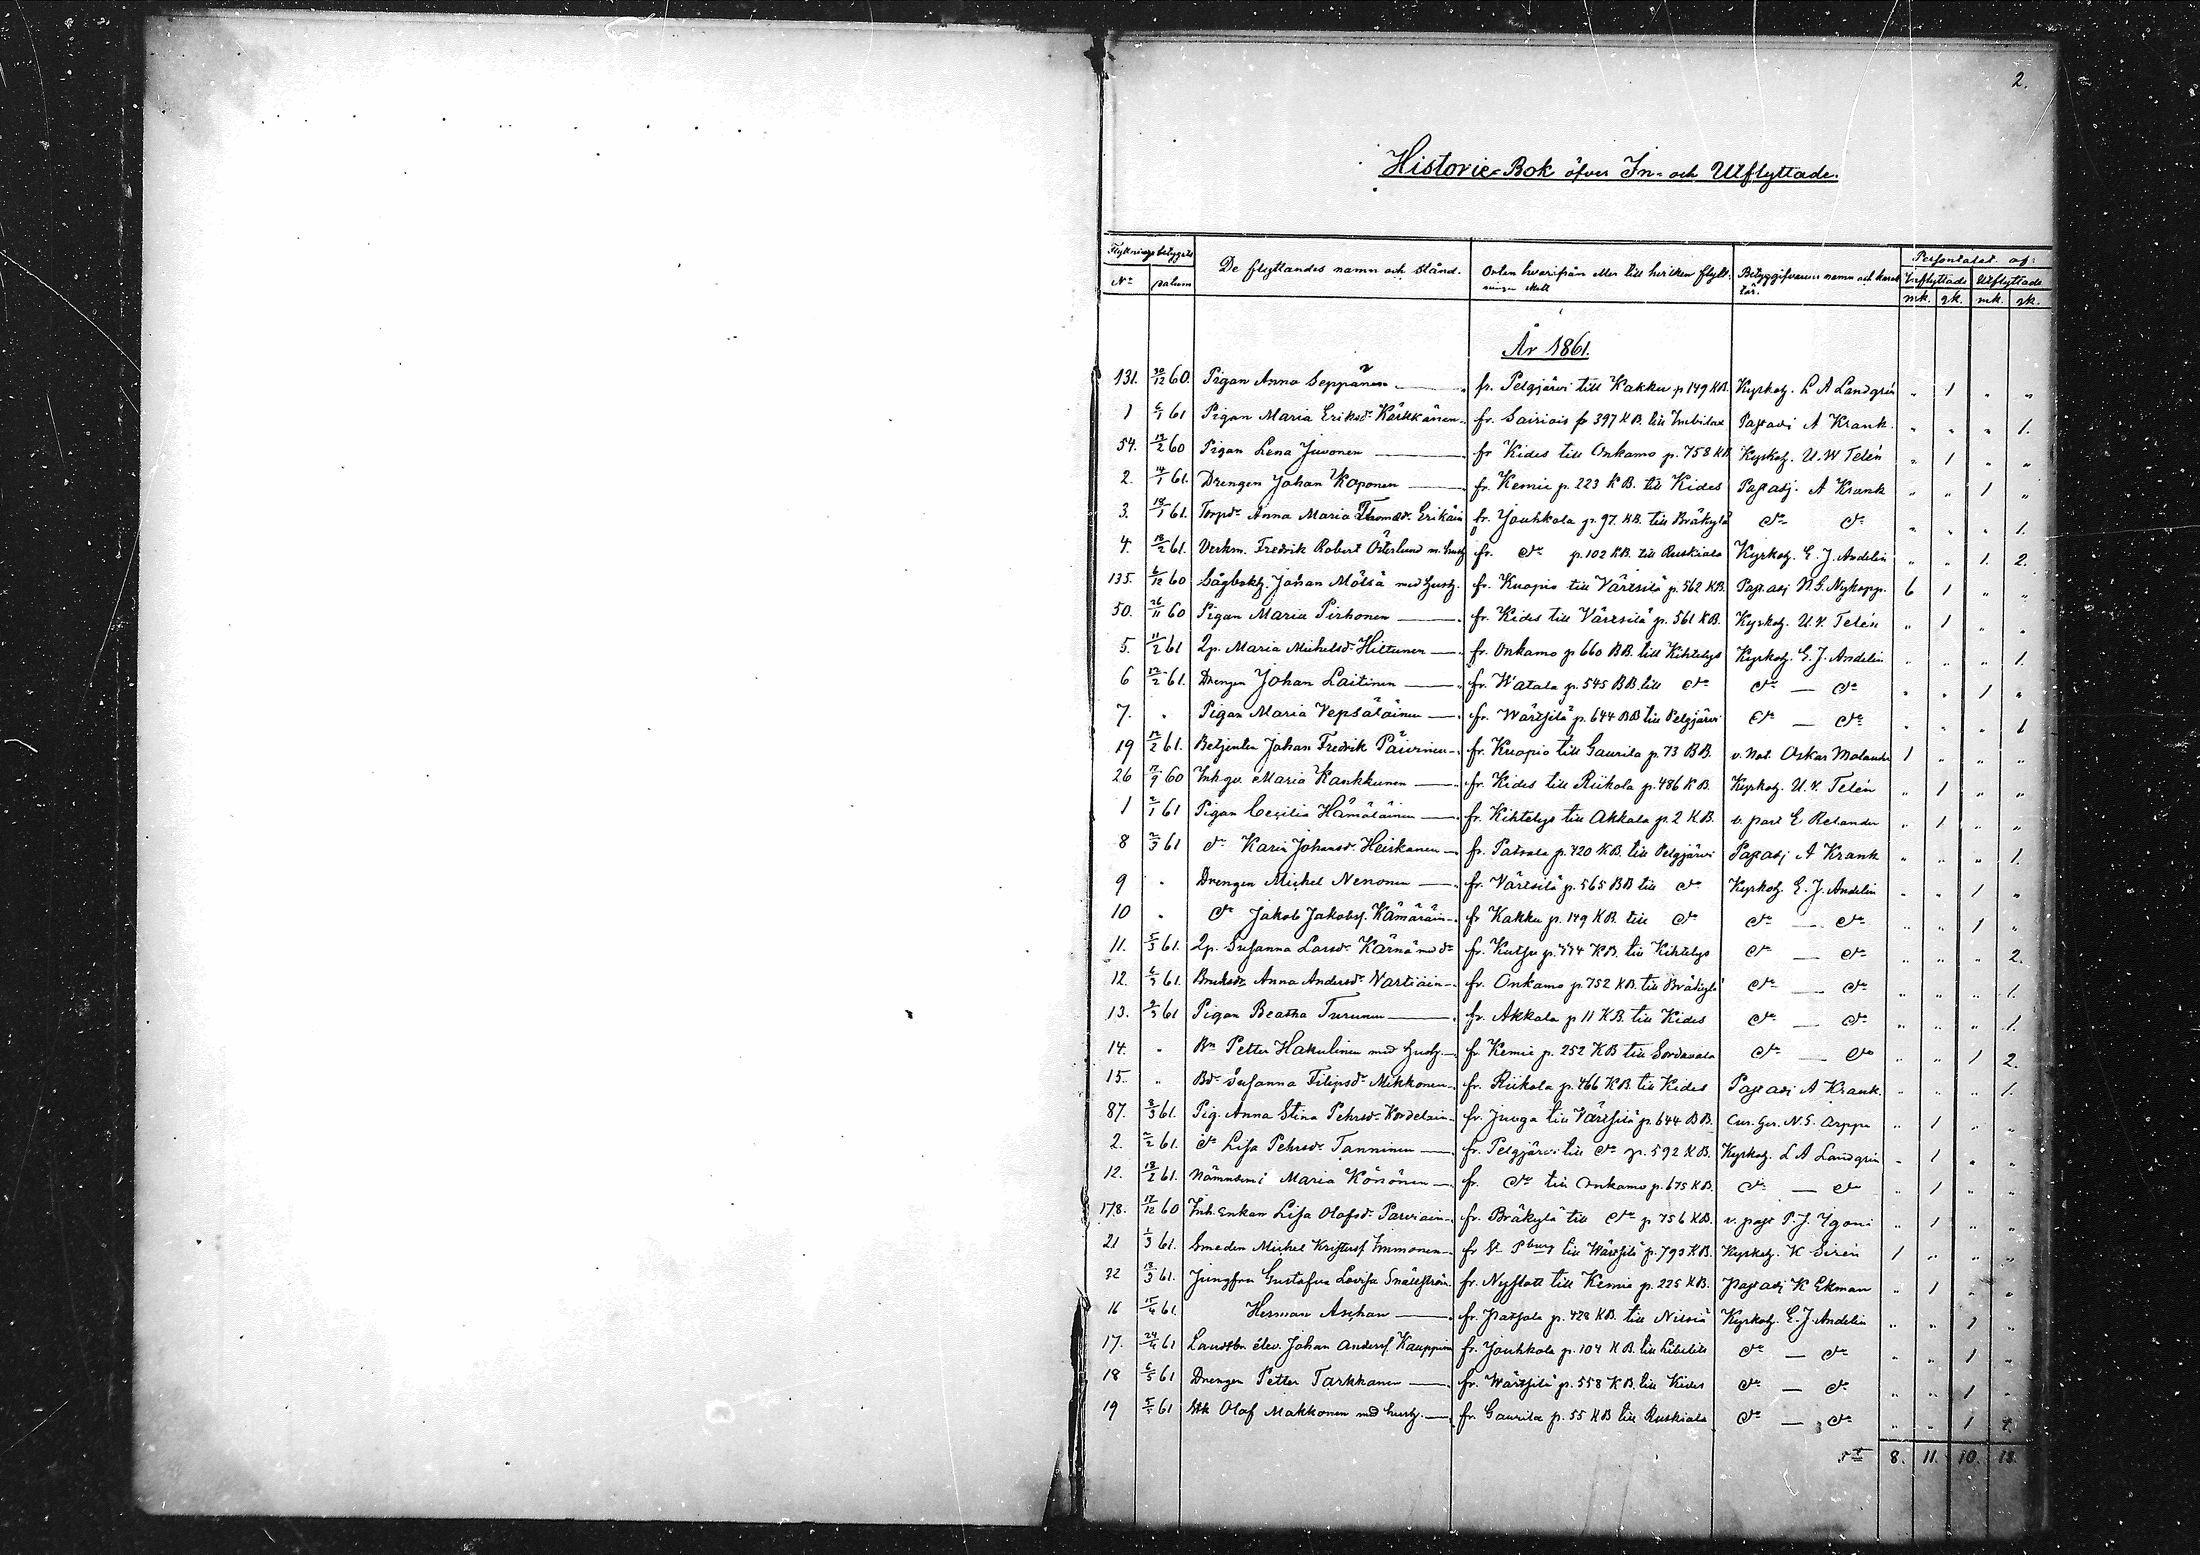 2.
Historie-Bok öfver In- och Utflyttade.
Flyttningsbetygets De flyttandes namn och stånd. Orten hvarifrån eller till hvilken flyttningen skett Betygsgifvarens namn och karaktär. Persontalet af:
No Datum Inflyttade Utflyttade
mk. qk. mk. qk.
År 1861.
131. 30/12 60. Pigan Anna Seppänen — fr. Pelgjärvi till Kakku p 149 KB. Kyrkoh. L A Landgrén " 1 " "
1 6/1 61 Pigan Maria Eriksdr Kärkkänen fr. Sairiois p 397 KB. till Imbilax Past adj A Krank. " " " 1.
54. 60 Pigan Lena Juvonen — fr Kides till Onkamo p. 758 KB Kyrkoh. U. W Telén " 1 " "
2. 14/1 61. Drengen Johan Koponen — fr. Kemie p. 223 KB. till Kides Past adj. A Krank " " 1 "
3. 18/1 61. Torpdr Anna Maria Thomasdr Erikäin fr. Jouhkola p. 97 KB. till Bräkylä do do " " " 1.
4. 18/2 61. Verkm. Fredrik Robert Österlund m. hust fr. do p. 102 KB. till Ruskiala Kyrkoh. E. J. Andelin " " 1. 2.
135. 6/12 60 Sågbokh. Johan Mölsä med hust. fr. Kuopio till Värtsilä p. 562 KB. Past. adj N. G. Nykopp. 6 1 " "
50. 26/11 60 Pigan Maria Pirhonen — fr. Kides till Värtsilä p. 561 KB. Kyrkoh. U. V. Telén " 1 " "
5. 11/2 61 Qp. Maria Michelsdr Hiltunen — fr. Onkamo p 660 BB. till Kihtelys Kyrkoh. E. J. Andelin " " " 1.
6 12/2 61. Drengen Johan Laitinen — fr. Watala p. 545 BB. till do do — do " " 1 "
7. " Pigan Maria Vepsäläinen — fr. Wärtsilä p. 644 BB till Pelgjärvi do — do " " " 1
19 12/2 61. Betjenten Johan Fredrik Päivinen fr. Kuopio till Gaurila p. 73 BB. v. Not. Oskar Molander 1 " " "
26 17/9 60 Inhqv. Maria Kankkunen — fr. Kides till Riikola p. 486 KB. Kyrkoh. U. V. Telén " 1 " "
1 2/1 61 Pigan Cecilia Hämäläinen — fr. Kihtelys till Akkala p. 2 KB. v. past E Relander " 1 " "
8 2/3 61 do Karin Johansdr Heiskanen — fr. Patsola p. 420 KB. till Pelgjärvi Past adj A Krank " " " 1.
9 " Drengen Michel Nenonen — fr. Värtsilä p. 565 BB till do Kyrkoh. E. J. Andelin " " 1 "
10 " do Jakob Jakobss. Kämäräin fr Kakku p. 149 KB. till do do — do " " 1 "
11. 5/3 61. Qp. Susanna Larsdr Kärnä med dr fr. Kutsu p. 774 KB. till Kihtelys do — do " " " 2.
12. 6/3 61. Anna Andersdr Vartiäin fr. Onkamo p. 752 KB. till Bräkylä do — do " " " 1.
13. 61 Pigan Beatha Turunen — fr. Akkala p 11 KB. till Kides do — do " " " 1.
14. " Bn Petter Hakulinen med hust. fr Kemie p. 252 KB till Sordavala do — do " " 1 2.
15. " Bdr Susanna Filipsdr Mikkonen fr. Riikola p. 466 KB. till Kides Past adj A Krank. " " " 1.
87. 8/3 61. Pig. Anna Stina Pehrsdr Kordelain fr. Juuga till Värtsilä p. 644 BB. N. S. Arppe " 1 " "
2. 61. do Lisa Pehrsdr Tanninen — fr. Pelgjärvi till do p. 592 KB. Kyrkoh. L A Landgrén " 1 " "
12. 18/2 61. Maria Könönen — fr. do till Onkamo p. 675 KB. do — do " 1 " "
178. 17/12 60 Inh. Enkan Lisa Olofsdr Parviain fr. Bräkylä till do p 756 KB. v. past P. J. Ygoni " 1 " "
21 1/3 61. Smeden Michel Kristerss Immonen fr St Pburg till Wärtsilä p. 793 KB. Kyrkoh. K Sirén 1 " " "
32 13/3 61. Jungfru Gustafva Lovisa Snällström fr. Nyslott till Kemie p. 225 KB. Past adj K Ekman " 1 " "
16 15/4 61. Herman Aschan — fr. Patsola p. 428 KB. till Nilsiä Kyrkoh. E. J. Andelin " " 1 "
17. 24/4 61 Landtbr. élev. Johan Anderss. Kauppinen fr. Jouhkola p. 104 KB. till Libelits do — do " " 1 "
18 6/5 61 Drengen Petter Tarkkanen — fr. Wärtsilä p. 558 KB. till Kides do — do " " 1 "
19 61 Olof Makkonen med hust. — fr. Gaurila p. 55 KB till Ruskiala do — do " " 1
8. 11. 10. 18.